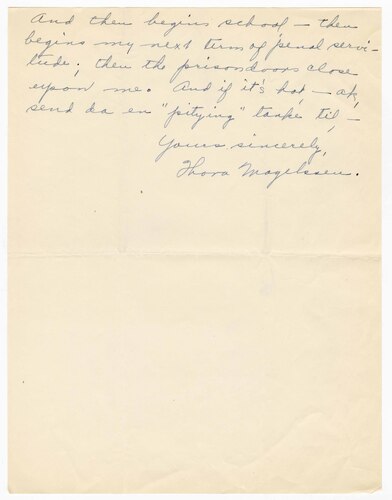 And then begins school — then
begins my next term of penal servi-
tude; then the prisondoors close
upon me. And if it's hot, — ak,
send da en "pitying" tanke til, —
Yours sincerely,
Thora Magelssen.